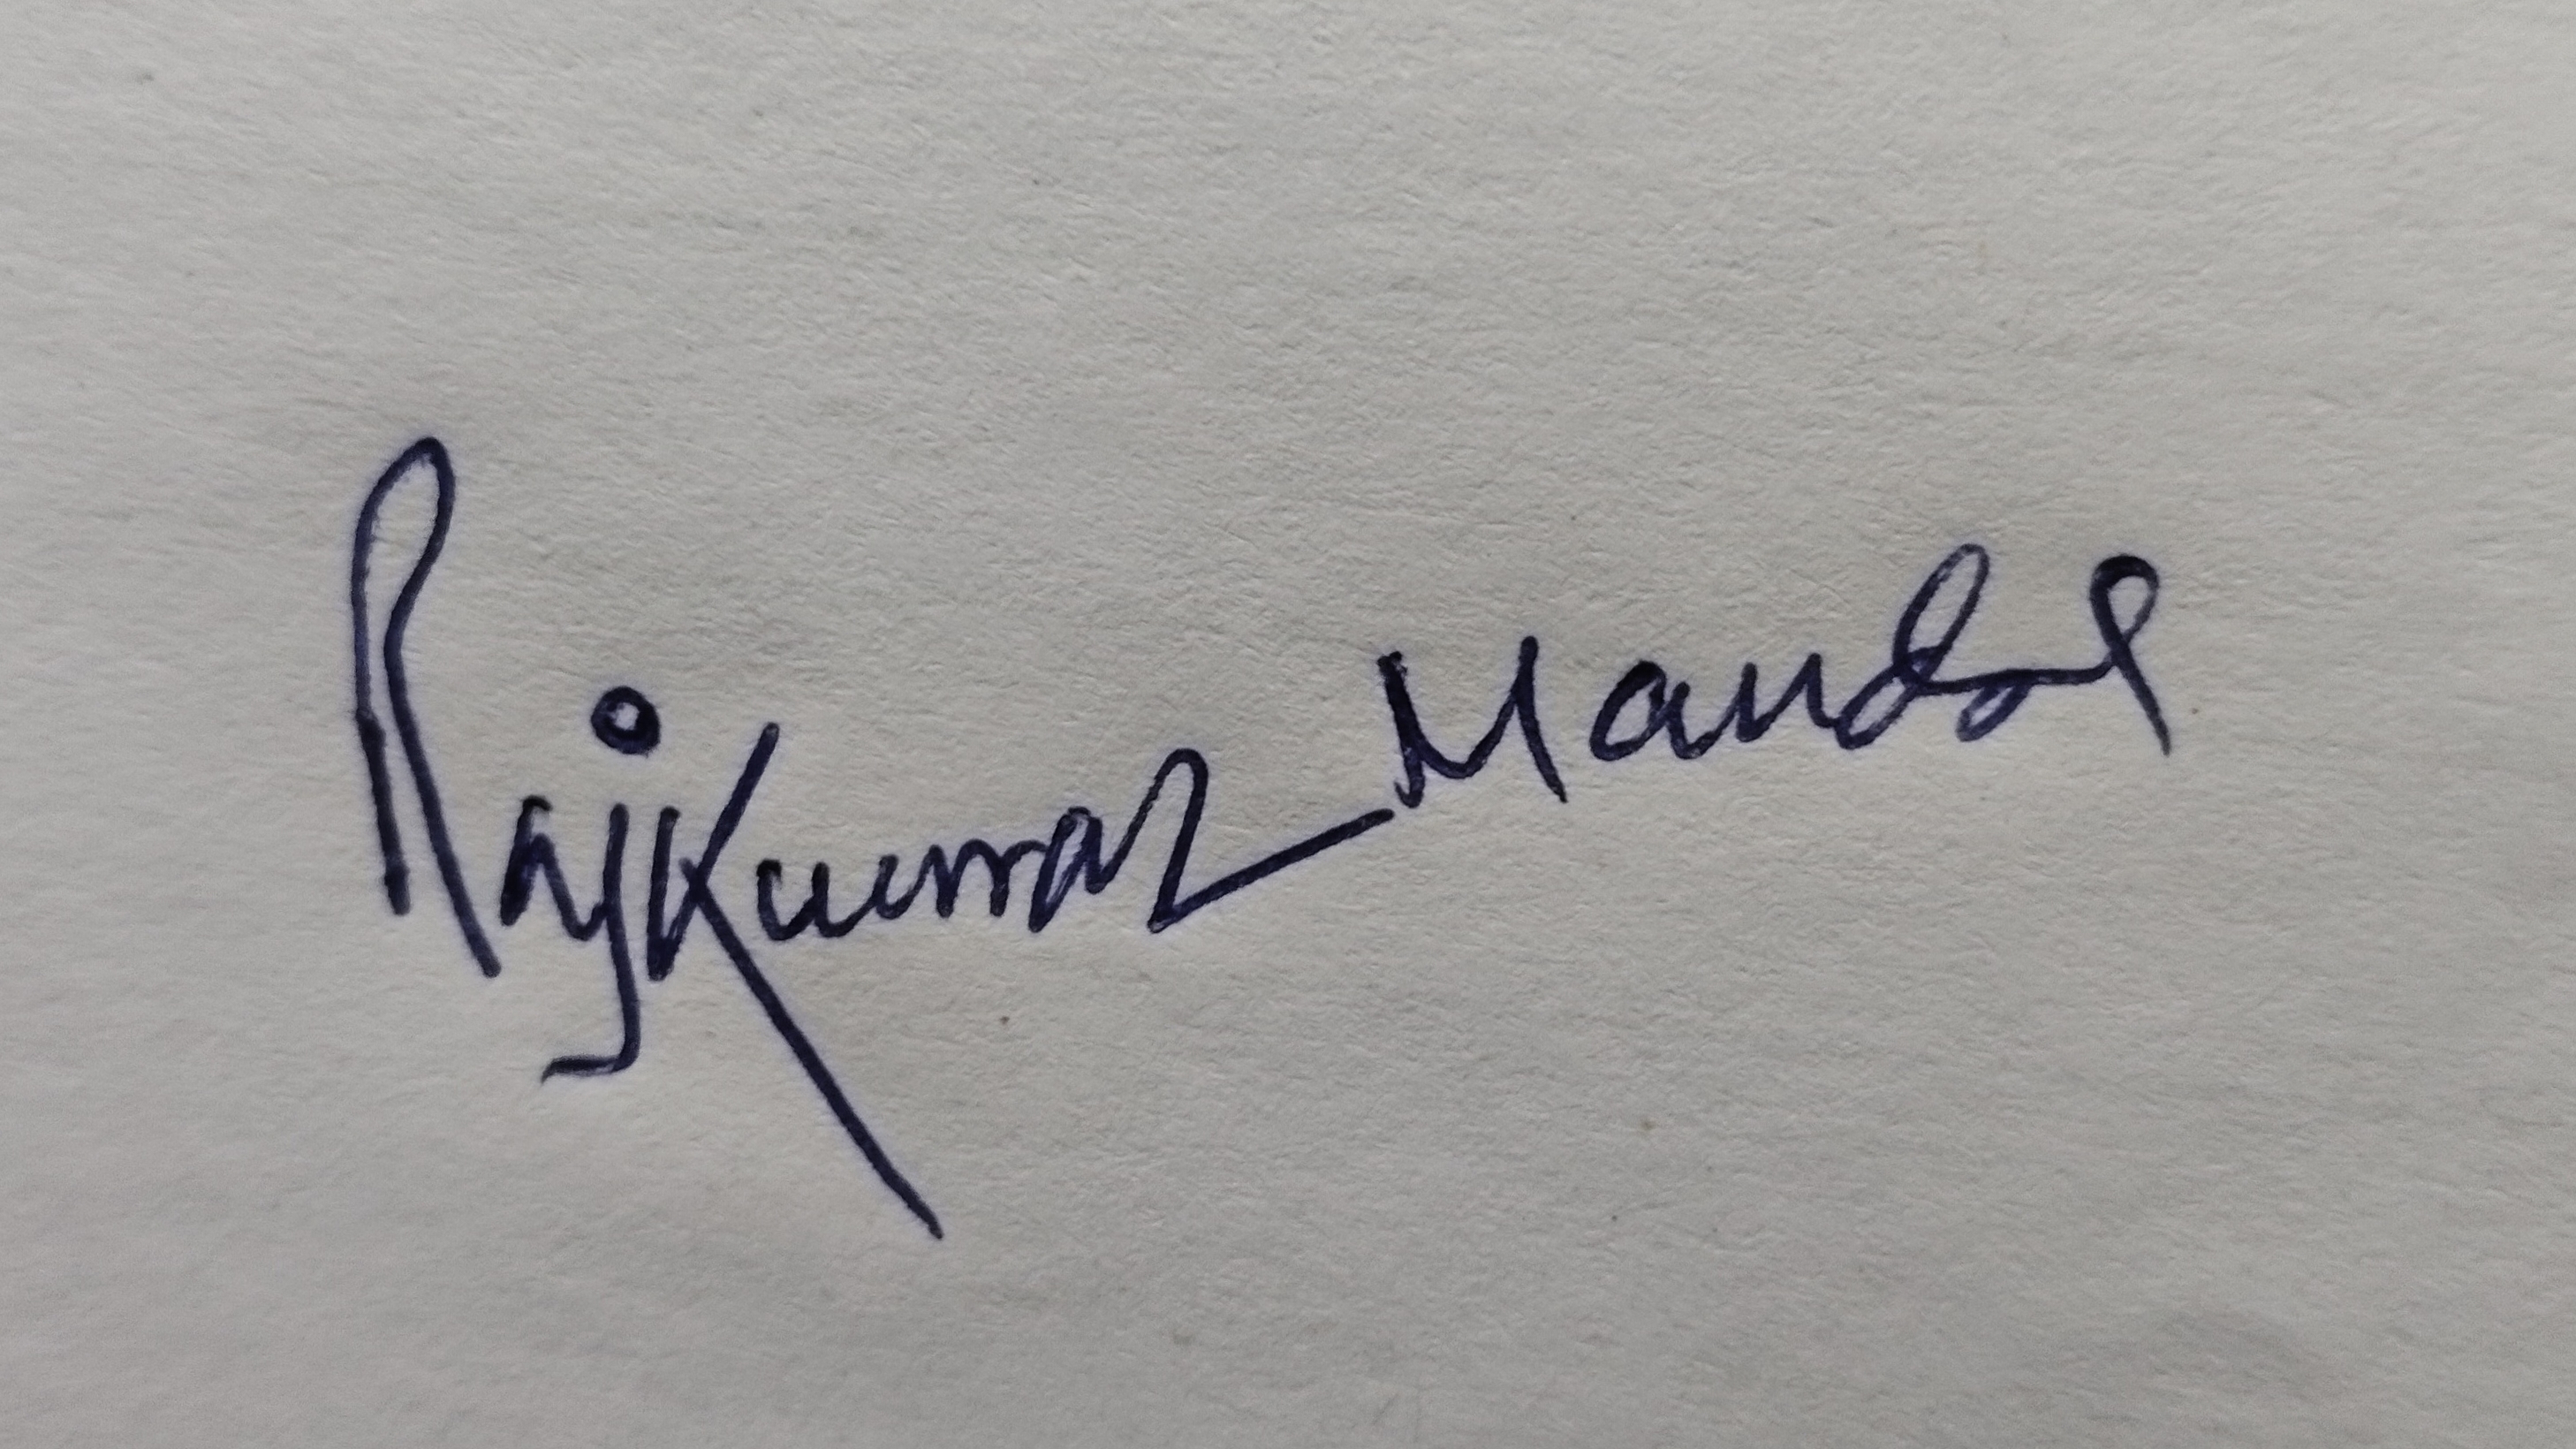 Rajkumar Mandal